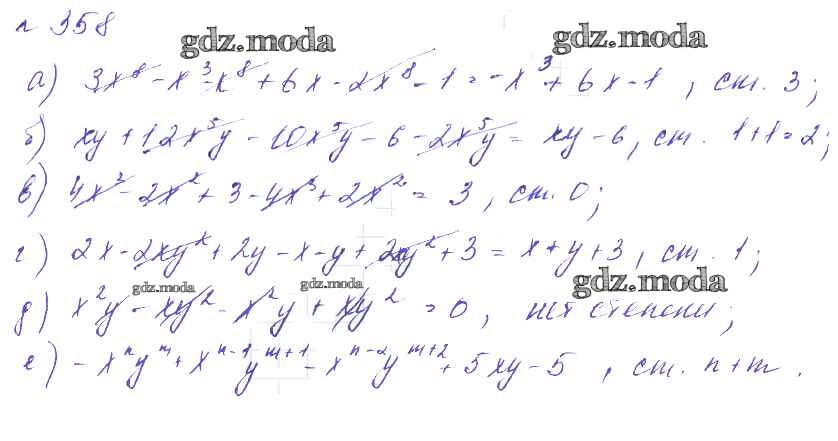 п 358
gdz.moda
gdz.moda
а) 3x⁸ - x³ - x⁸ + 6x - 2x⁸ - 1 = -x³ + 6x - 1 , ст. 3;
б) xy + 12x⁵y - 10x⁵y - 6 - 2x⁵y = xy - 6, ст. 1+1=2;
в) 4x³ - 2x² + 3 - 4x³ + 2x² = 3 , ст. 0;
г) 2x - 2xy² + 2y - x - y + 2xy² + 3 = x + y + 3 , ст. 1;
gdz.moda
gdz.moda
gdz.moda
д) x²y - xy² - x²y + xy² = 0 , нет степени;
е) -xⁿyᵐ + xⁿ⁻¹yᵐ⁺¹ - xⁿ⁻²yᵐ⁺² + 5xy - 5 , ст. n+m .